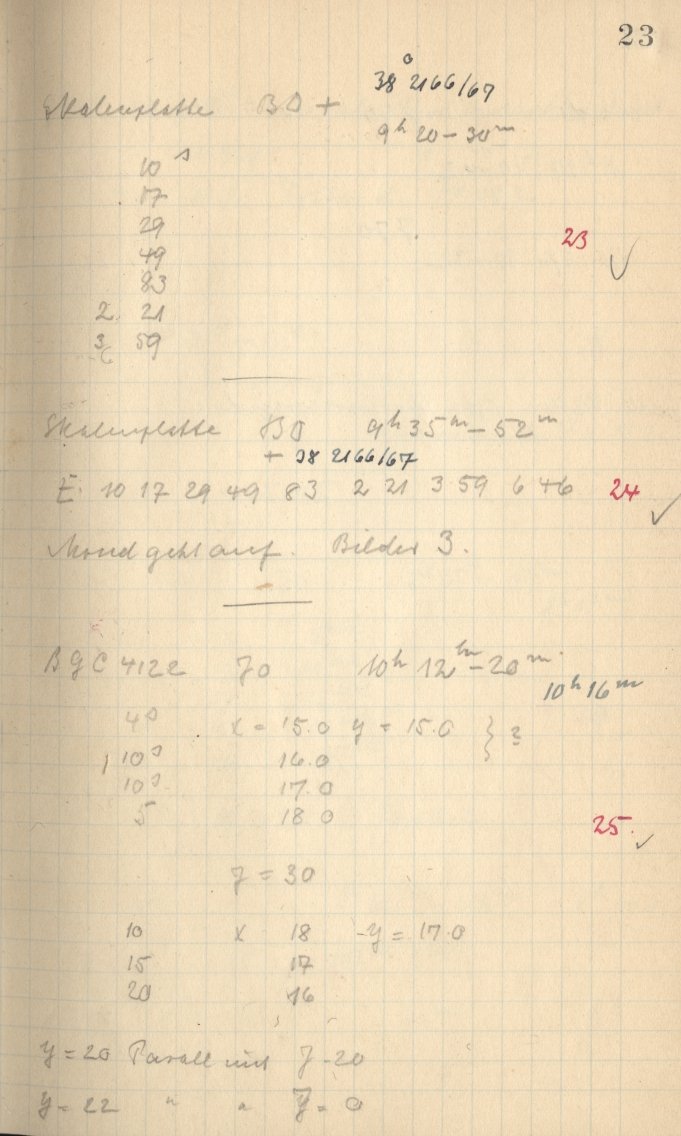 23
38° 2166/67
Skalenplatte BD +
9h 20 – 30m
10 s
17
29
49
83
23
2. 21
3 59
Skalenplatte BD 9h 35m – 52m
+ 38 2166/67
E. 10 17 29 49 83 2 21 3 59 6 46 24
Mond geht auf. Bilder 3.
BGC 4122 70 10h 12m – 20m
10h 16m
4s x = 15.0 y = 15.0 } ?
10s 16.0
10s 17.0
5 18 0
25.
7 = 30
10 x 18 y = 17.0
15 17
20 16
y = 20 Parall mit 7 - 20
y = 22 " " 7 = 0